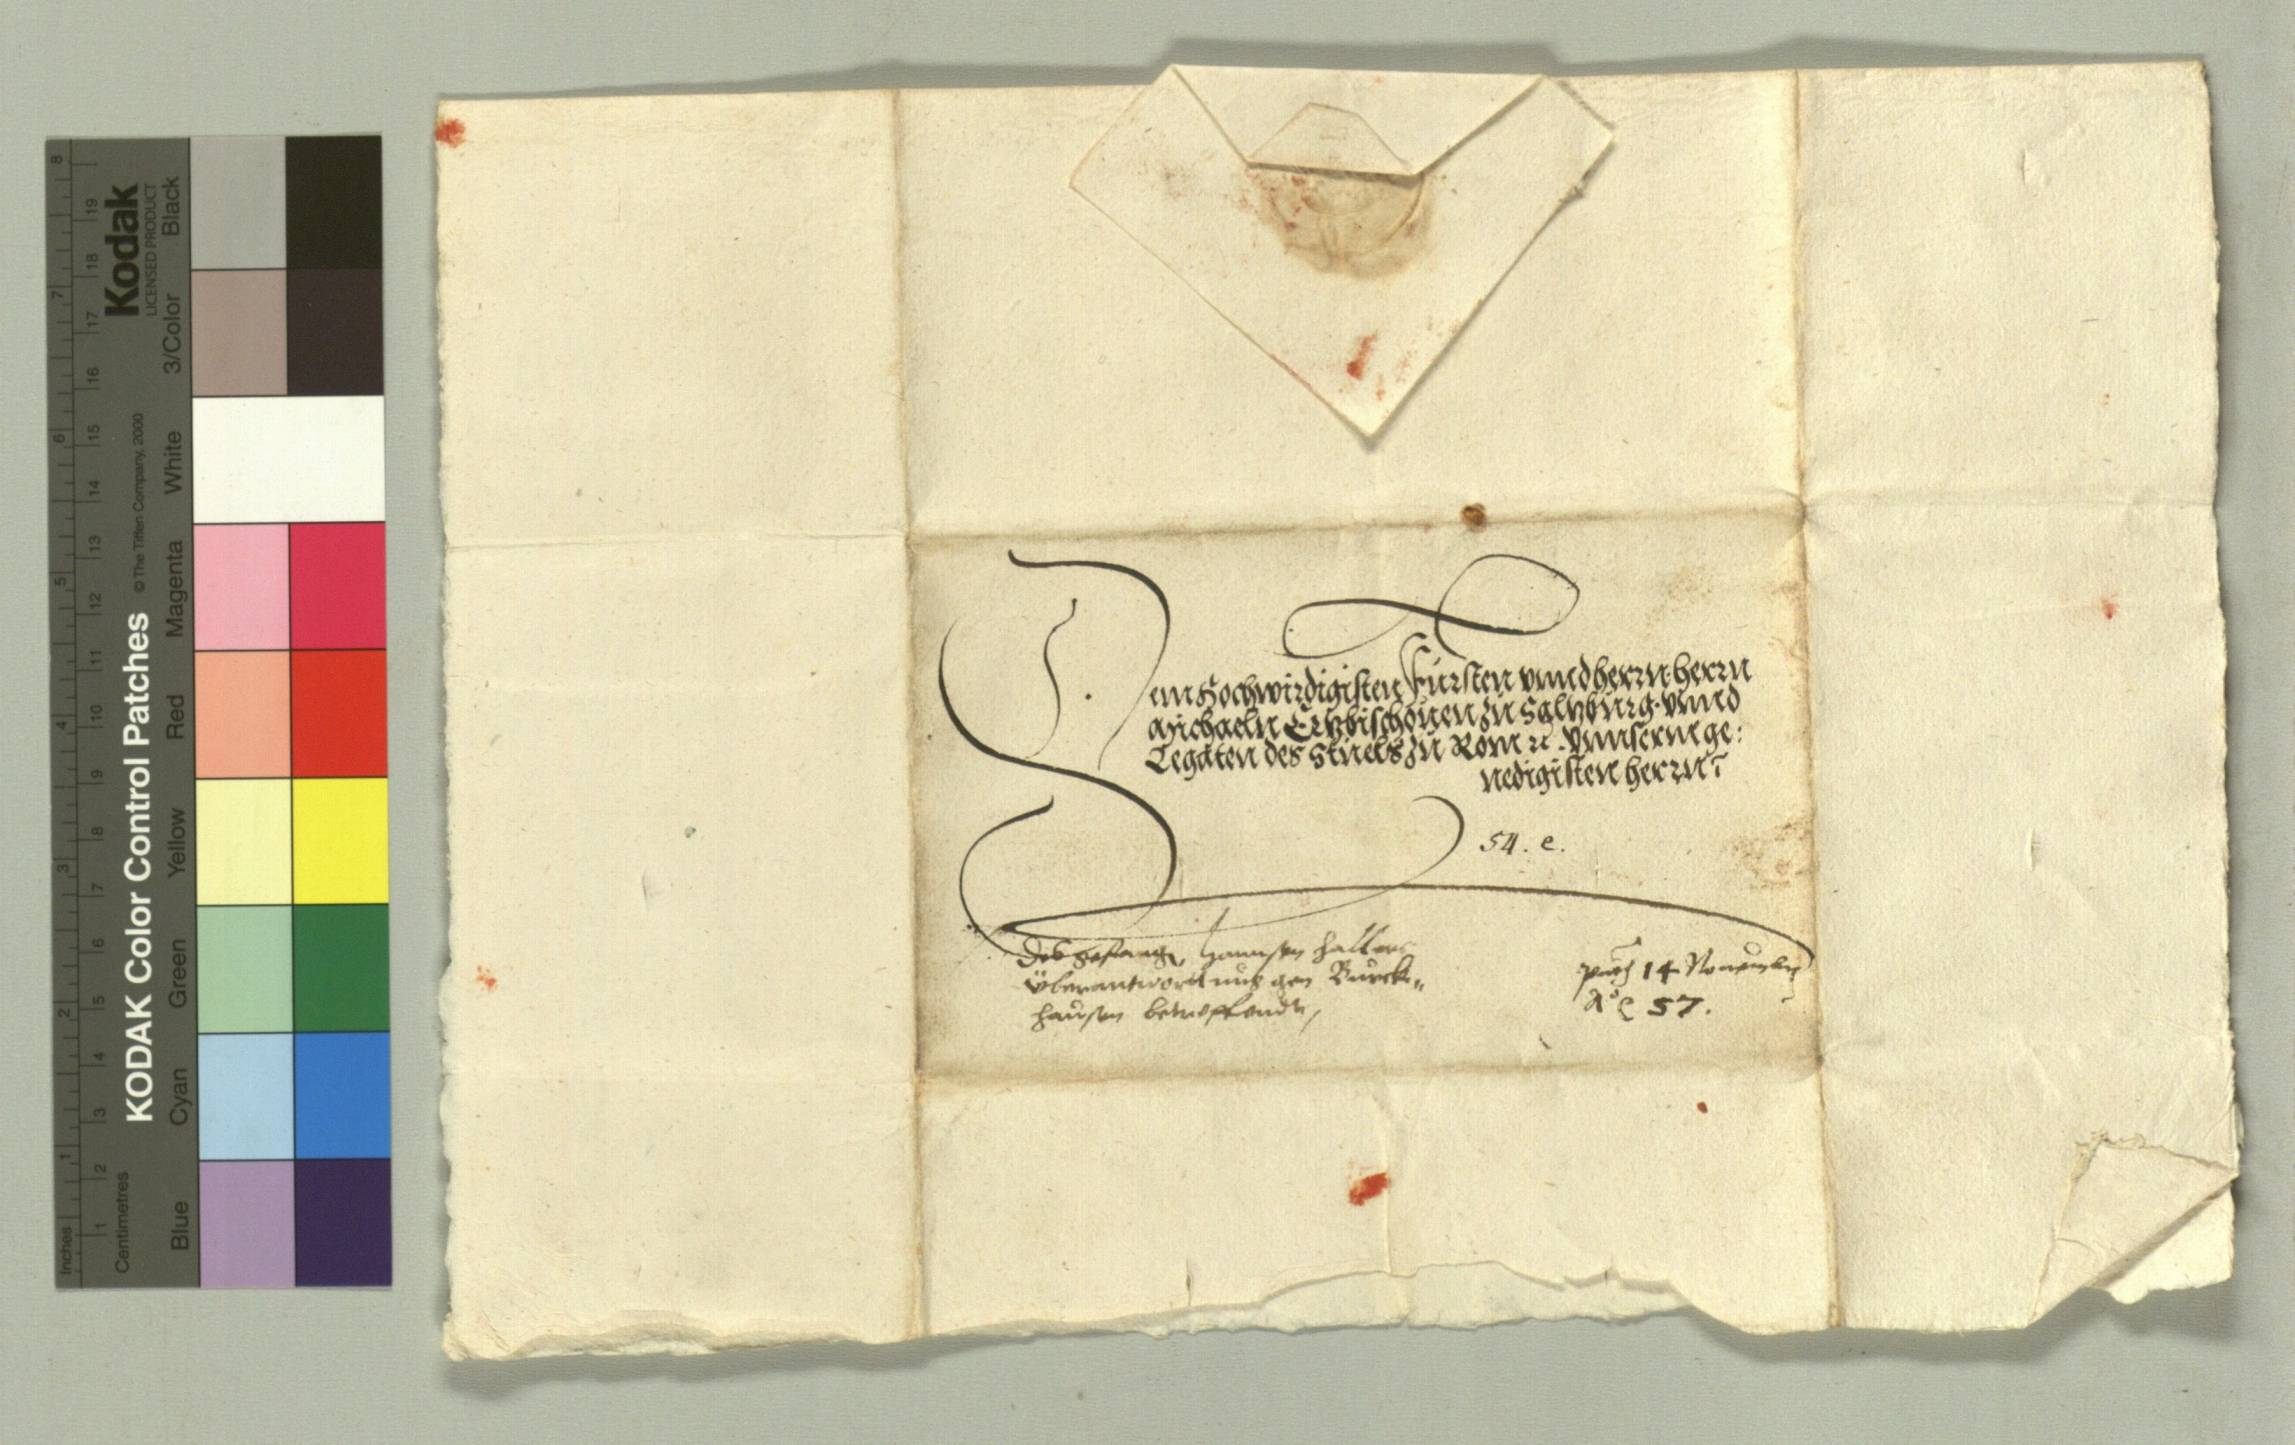 Dem Hochwirdigisten Fürsten vnnd herrn. herrn
Michaeln Ertzbischouen zu Saltzburg. vnnd
Legaten des Stuels zu Rom rc. vnnserm ge:
nedigisten herrn
54. e.
Des gefanngen Hannsen Hallers
überantworttung gen Burck„
hausen betreffendt,
14 Nouembris
Aº 57.
KODAK Color Control Patches
© The Tiffen Company, 2000
Kodak
LICENSED PRODUCT
Blue Cyan Green Yellow Red Magenta White 3/Color Black
Centimetres 1 2 3 4 5 6 7 8 9 10 11 12 13 14 15 16 17 18 19
Inches 1 2 3 4 5 6 7 8